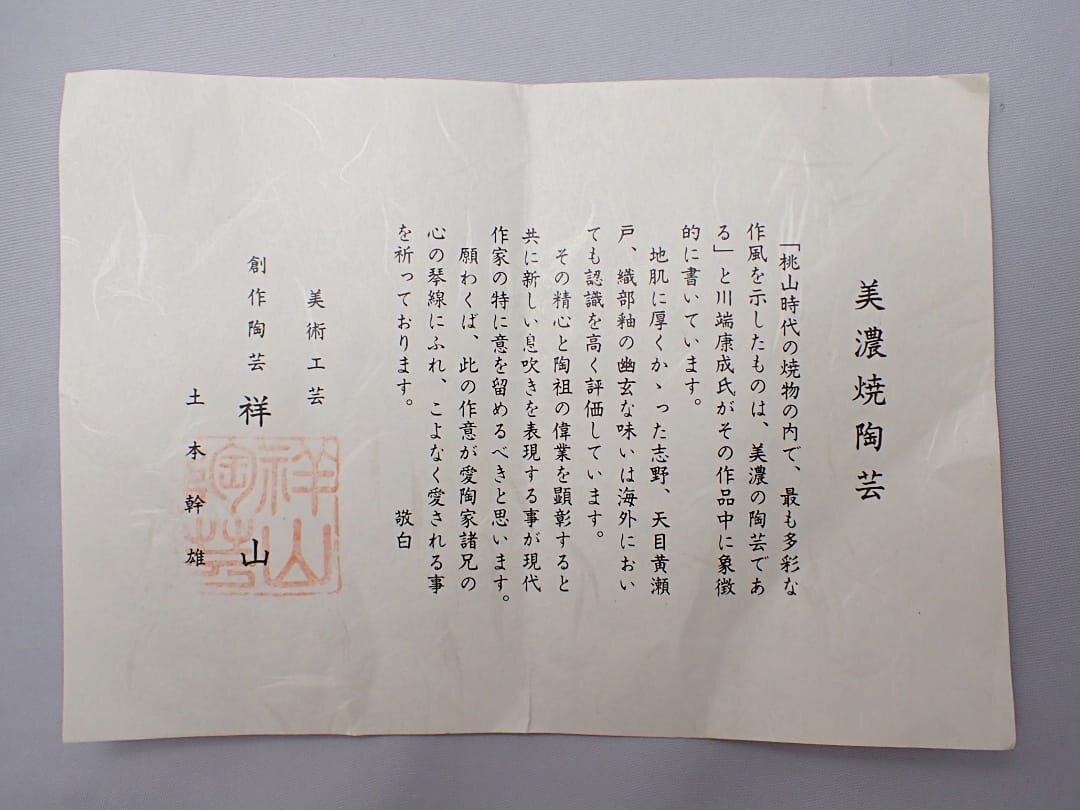 美濃焼陶芸
「桃山時代の焼物の内で、最も多彩な
作風を示したものは、美濃の陶芸であ
る」と川端康成氏がその作品中に象徴
的に書いています。
地肌に厚くかゝった志野、天目黄瀬
戸、織部釉の幽玄な味いは海外におい
ても認識を高く評価しています。
その精心と陶祖の偉業を顕彰すると
共に新しい息吹きを表現する事が現代
作家の特に意を留めるべきと思います。
願わくば、此の作意が愛陶家諸兄の
心の琴線にふれ、こよなく愛される事
を祈っております。 敬白
美術工芸
創作陶芸 祥山
土本幹雄
祥山
陶芸